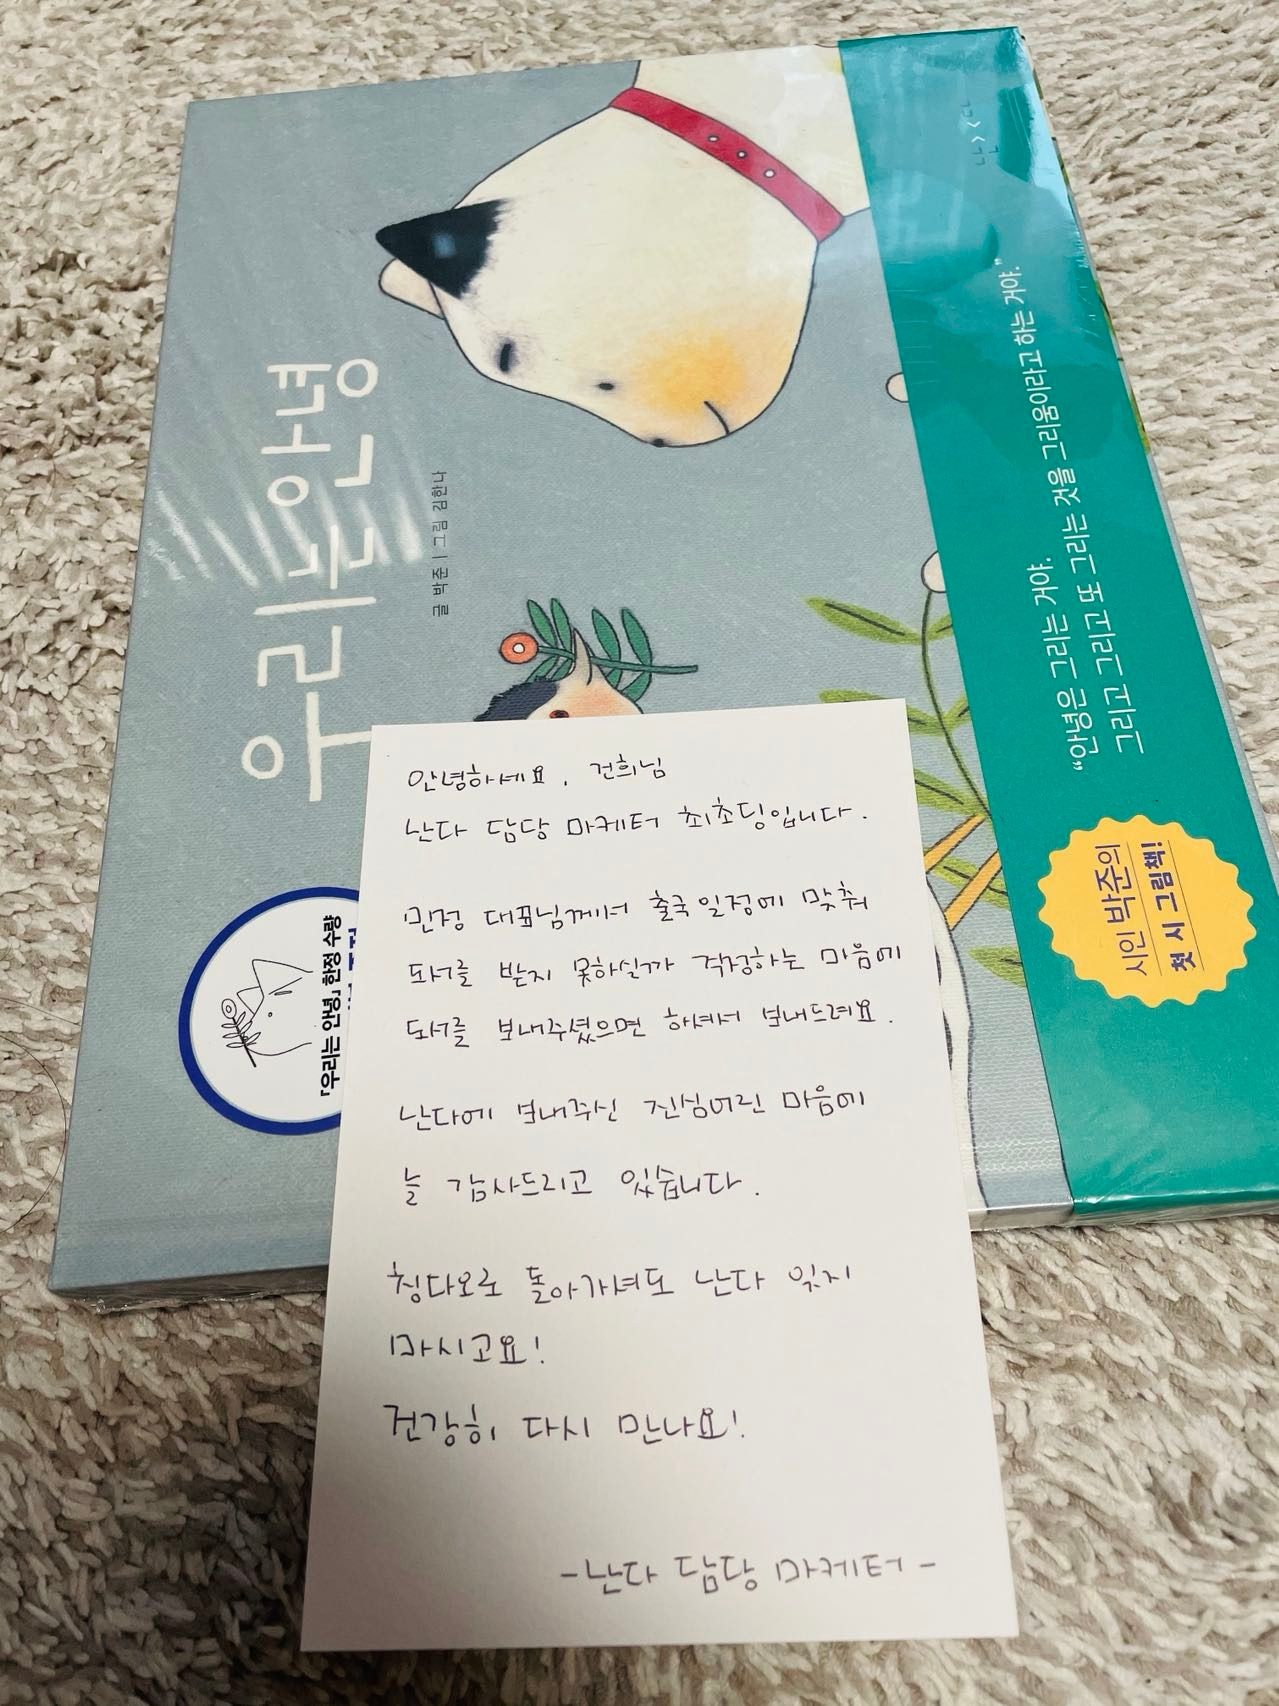 우리는 안녕
글 박준 | 그림 김한나
「우리는 안녕」 한정 수량
"안녕은 그리는 거야.
그리고 그리고 또 그리는 것을 그리움이라고 하는 거야."
시인 박준의
첫 시 그림책!
안녕하세요, 건희님
난다 담당 마케터 최초딩입니다.
민정 대표님께서 출국일정에 맞춰
도서를 받지 못하실까 걱정하는 마음에
도서를 보내주셨으면 하셔서 보내드려요.
난다에 보내주신 진심어린 마음에
늘 감사드리고 있습니다.
칭다오로 돌아가셔도 난다 잊지
마시고요!
건강히 다시 만나요!
-난다 담당 마케터-